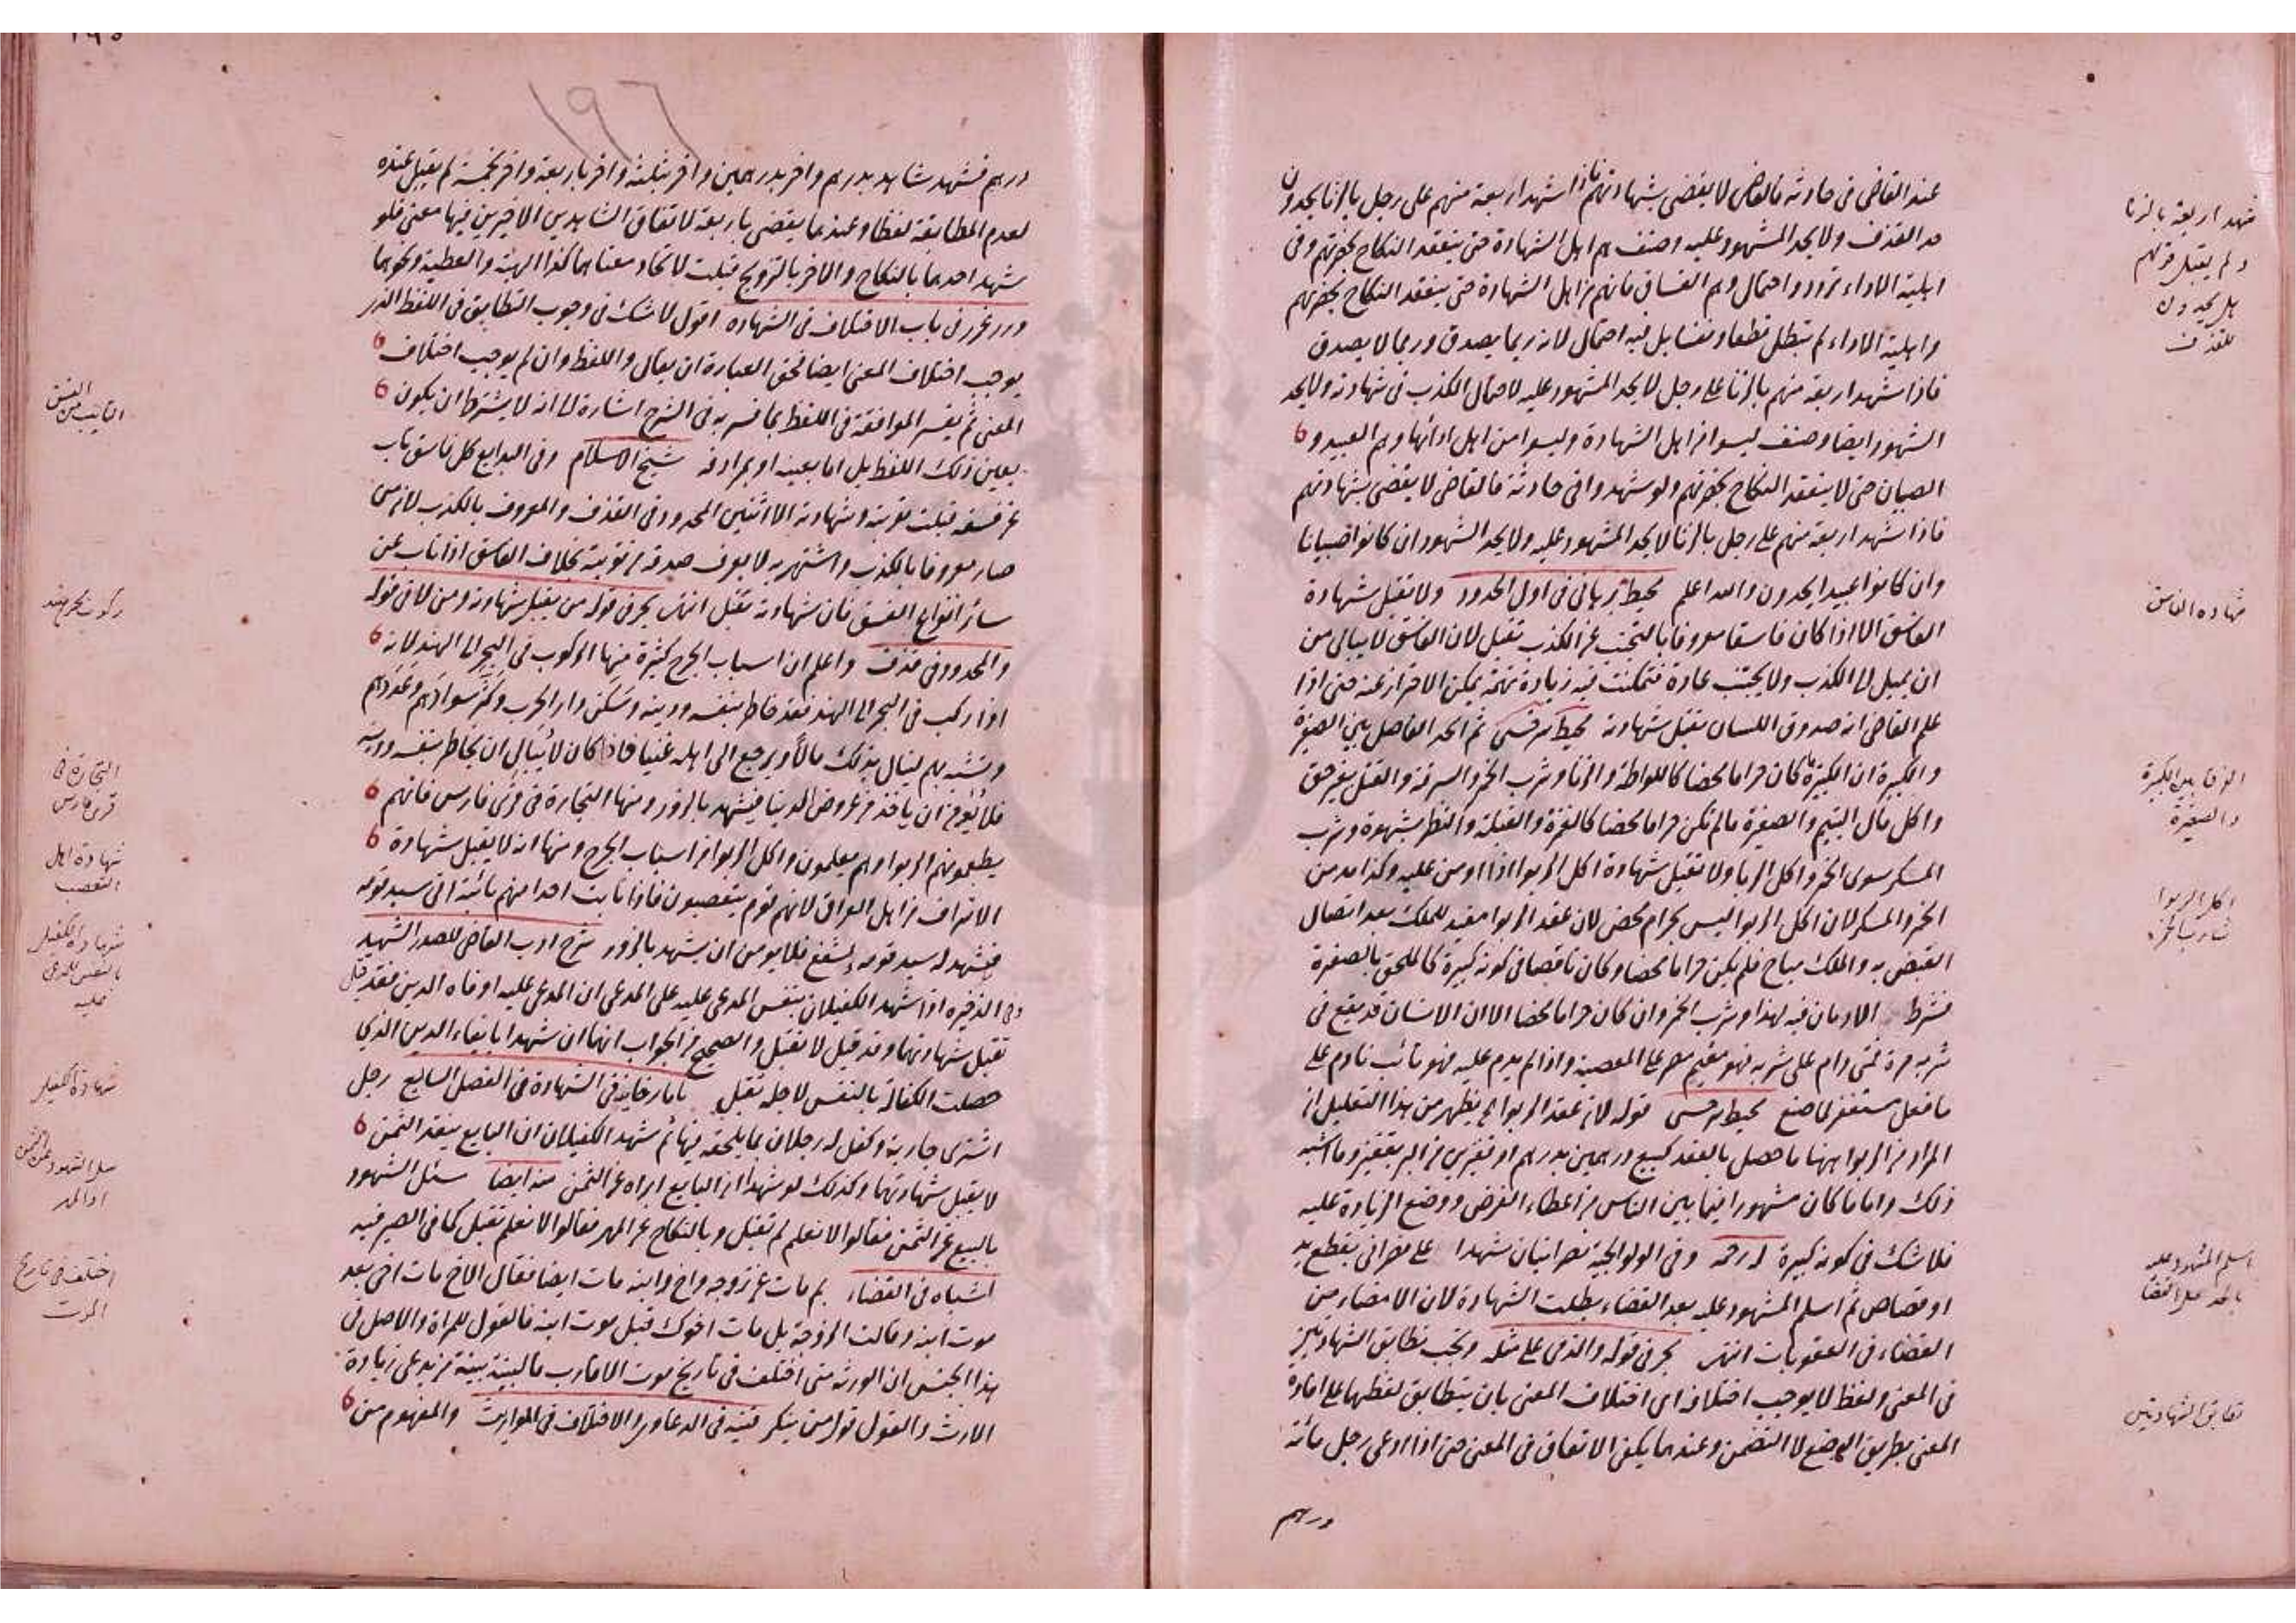 عند القاضى فى حادثه فالقاضى لا يقضى بشهادتهم فاذا شهد اربعة منهم على رجل بالزنا يحدون
حد القذف ولا يحد المشهود عليه وصنف هم اهل الشهادة حتى ينعقد النكاح بحضرتهم وفى
اهلية الاداء تردد واحتمال وهم الفساق فانهم من اهل الشهادة حتى ينعقد النكاح بحضرتهم
واهلية الاداء لم تبطل قطعا ونفيا بل فيه احتمال لانه ربما يصدق وربما لا يصدق
فاذا شهد اربعة منهم بالزنا على رجل لا يحد المشهود عليه لاحتمال الكذب فى شهادته ولا يحد
الشهود ايضا وصنف ليسوا من اهل الشهادة وليسوا من اهل ادائها وهم العبيد و
الصبيان حتى لا ينعقد النكاح بحضرتهم ولو شهدوا فى حادثة فالقاضى لا يقضى بشهادتهم
فاذا شهد اربعة منهم على رجل بالزنا لا يحد المشهود عليه ولا يحد الشهود ان كانوا صبيانا
وان كانوا عبيدا يحدون والله اعلم محيط برهانى فى اول الحدود ولا تقبل شهادة
الفاسق الا اذا كان فاسقا معروفا بالتجنب عن الكذب تقبل لان الفاسق لا يبالى من
ان يميل الى الكذب ولا يجتنب عادة فتمكنت فيه زيادة تهمة يمكن الاحتراز عنه حتى اذا
علم القاضى انه صدوق اللسان يقبل شهادته محيط سرخسى ثم الحد الفاصل بين الصغيرة
والكبيرة ان الكبيرة ما كان حراما محضا كاللواطة والزنا وشرب الخمر والسرقة والقتل بغير حق
واكل مال اليتيم والصغيرة مالم تكن حراما محضا كالغمزة والقبلة والنظر بشهوة وشرب
المسكر سوى الخمر واكل الربا ولا تقبل شهادة اكل الربوا اذا ادمن عليه وكذا مدمن
الخمر والمسكر لان اكل الربوا ليس بحرام محض لان عقد الربوا مفيد للملك بعد اتصال
القبض به والملك مباح فلم يكن حراما محضا وكان ناقصا فى كونه كبيرة كالملحق بالصغيرة
فشرط الادمان فيه لهذا وشرب الخمر وان كان حراما محضا الا ان الانسان قد يقع فى
شربه مرة فمتى دام على شربه فهو مقيم مصر على المعصية واذا لم يدم عليه فهو تائب نادم على
ما فعل مستغفر لما صنع محيط سرخسى قوله لان عقد الربوا الخ يظهر من هذا التعليل ان
المراد من الربوا ههنا ما حصل بالعقد كبيع درهمين بدرهم او قفيزين من البر بقفيز وما اشبه
ذلك واما ما كان مشهورا فيما بين الناس من اعطاء القرض ووضع الزيادة عليه
فلا شك فى كونه كبيرة له رحمه وفى الولوالجية نصرانيان شهدا على نصرانى بقطع يد
او قصاص ثم اسلم المشهود عليه بعد القضاء بطلت الشهادة لان الامضاء من
القضاء فى العقوبات انتهى بحر فى قوله والذمى على مثله ويجب تطابق الشهادتين
فى المعنى ولفظ لا يوجب اختلافه اى اختلاف المعنى بان يتطابق لفظهما على افادة
المعنى بطريق الوضع لا التضمن وعندهما يكفى الاتفاق فى المعنى حتى اذا ادعى رجل مائة
درهم
شهد اربعة بالزنا
ولم يقبل قولهم
هل يحدون
للقذف
شهادة الفاسق
الفرق بين الكبيرة
والصغيرة
اكل الربوا
شارب الخمر
اسلم المشهود عليه
بالحد قبل القضا
تطابق الشهادتين
١٩٦
درهم فشهد شاهد بدرهم واخر بدرهمين واخر بثلثة واخر باربعة واخر بخمسة لم يقبل عنده
لعدم المطابقة لفظا وعندهما يقضى باربعة لاتفاق الشاهدين الاخيرين فيها معنى فلو
شهد احدهما بالنكاح والاخر بالتزويج قبلت لاتحاد معناهما كذا الهبة والعطية ونحوهما
درر غرر فى باب الاختلاف فى الشهادة اقول لا شك فى وجوب التطابق فى اللفظ الذى
يوجب اختلاف المعنى ايضا فحق العبارة ان يقال واللفظ وان لم يوجب اختلاف
المعنى ثم يفسر الموافقة فى اللفظ بما فسر به فى الشرح اشارة الى انه لا يشترط ان يكون
بعين ذلك اللفظ بل اما بعينه او بمرادفه شيخ الاسلام وفى البدايع كل فاسق تاب
عن فسقه قبلت توبته وشهادته الا اثنين المحدود فى القذف والمعروف بالكذب لان من
صار معروفا بالكذب واشتهر به لا يعرف صدقه من توبته بخلاف الفاسق اذا تاب عن
سائر انواع الفسق فان شهادته تقبل انتهى بحر فى قوله من يقبل شهادته ومن لا فى قوله
والمحدود فى قذف واعلم ان اسباب الجرح كثيرة منها الركوب فى البحر الى الهند لانه
اذا ركب فى البحر الى الهند فقد خاطر بنفسه ودينه وسكن دار الحرب وكثر سوادهم وعددهم
وتشبه بهم لينال بذلك مالا ويرجع الى اهله غنيا فاذا كان لا يبالى ان يخاطر بنفسه ودينه
فلا يؤمن ان ياخذ من عروض الدنيا فيشهد بالزور ومنها التجارة فى قرى فارس فانهم
يطعمونهم الربوا وهم يعلمون واكل الربوا من اسباب الجرح ومنها انه لا يقبل شهادة
الاشراف من اهل العراق لانهم قوم يتعصبون فاذا نابت احدا منهم نائبة اتى سيد قومه
فيشهد له سيد قومه ويشفع فلا يومن ان يشهد بالزور شرح ادب القاضى للصدر الشهيد
وفى الذخيره اذا شهد الكفيلان بنفس المدعى عليه على المدعى ان المدعى عليه اوفاه الدين فقد قيل
تقبل شهادتهما وقد قيل لا تقبل والصحيح من الجواب انهما ان شهدا بايفاء الدين الذى
حصلت الكفالة بالنفس لاجله تقبل تاتارخانيه فى الشهادة فى الفصل السابع رجل
اشترى جارية وكفل له رجلان بما يلحقه فيها ثم شهد الكفيلان ان البايع ينقد الثمن
لا يقبل شهادتهما وكذلك لو شهدا ان البايع ابراه عن الثمن منه ايضا سئل الشهود
بالبيع عن الثمن فقالوا لا نعلم لم تقبل وبالنكاح عن المهر فقالوا لا نعلم تقبل كما فى الصيرفيه
اشباه فى القضاء بم مات عن زوجه واخ وابنه مات ايضا فقال الاخ مات اخى بعد
موت ابنه وقالت الزوجة بل مات اخوك قبل موت ابنه فالقول للمراة والاصل فى
هذا الجنس ان الورثه متى اختلف فى تاريخ موت الاقارب فالبينة بينة من يدعى زيادة
الارث والقول قول من ينكر قنيه فى الدعاوى والاختلاف فى المواريث والمفهوم من
التايب من الفسق
ركوب بحر هند
التجارة فى
قرى فارس
شهادة اهل
التعصب
شهادة الكفيل
بالنفس للمدعى
عليه
شهادة الكفيل
سئل الشهود عن الثمن
او المهر
اختلف فى تاريخ
الموت